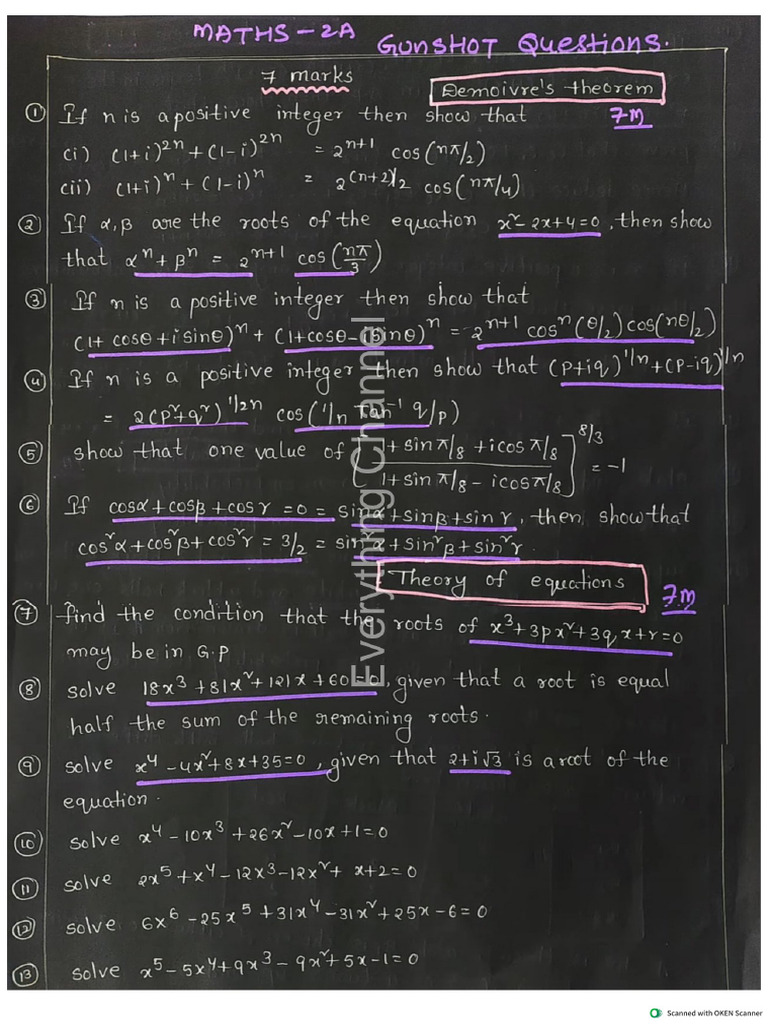 MATHS - 2A GUNSHOT Questions.
7 marks
Demoivre's theorem
① If n is a positive integer then show that 7M
(i) (1+i)²ⁿ + (1-i)²ⁿ = 2ⁿ⁺¹ cos(nπ/2)
(ii) (1+i)ⁿ + (1-i)ⁿ = 2^(n+2)/2 cos(nπ/4)
② If α, β are the roots of the equation x²-2x+4=0, then show
that αⁿ + βⁿ = 2ⁿ⁺¹ cos(nπ/3)
③ If n is a positive integer then show that
(1+cosθ+isinθ)ⁿ + (1+cosθ-isinθ)ⁿ = 2ⁿ⁺¹ cosⁿ(θ/2) cos(nθ/2)
④ If n is a positive integer then show that (P+iq)^1/n + (P-iq)^1/n
= 2(P²+q²)^1/2n cos(1/n Tan⁻¹ q/p)
⑤ show that one value of [1+sin π/8 + icos π/8 / 1+sin π/8 - icos π/8]^8/3 = -1
⑥ If cosα+cosβ+cosγ = 0 = sinα+sinβ+sinγ, then show that
cos²α+cos²β+cos²γ = 3/2 = sin²α+sin²β+sin²γ.
Theory of equations
7M
⑦ find the condition that the roots of x³+3px²+3qx+r=0
may be in G.P
⑧ solve 18x³+81x²+121x+60=0, given that a root is equal
half the sum of the remaining roots.
⑨ solve x⁴-4x²+8x+35=0, given that 2+i√3 is a root of the
equation.
⑩ solve x⁴-10x³+26x²-10x+1=0
⑪ solve 2x⁵+x⁴-12x³-12x²+x+2=0
⑫ solve 6x⁶-25x⁵+31x⁴-31x²+25x-6=0
⑬ solve x⁵-5x⁴+9x³-9x²+5x-1=0
Everything Channel
Scanned with OKEN Scanner